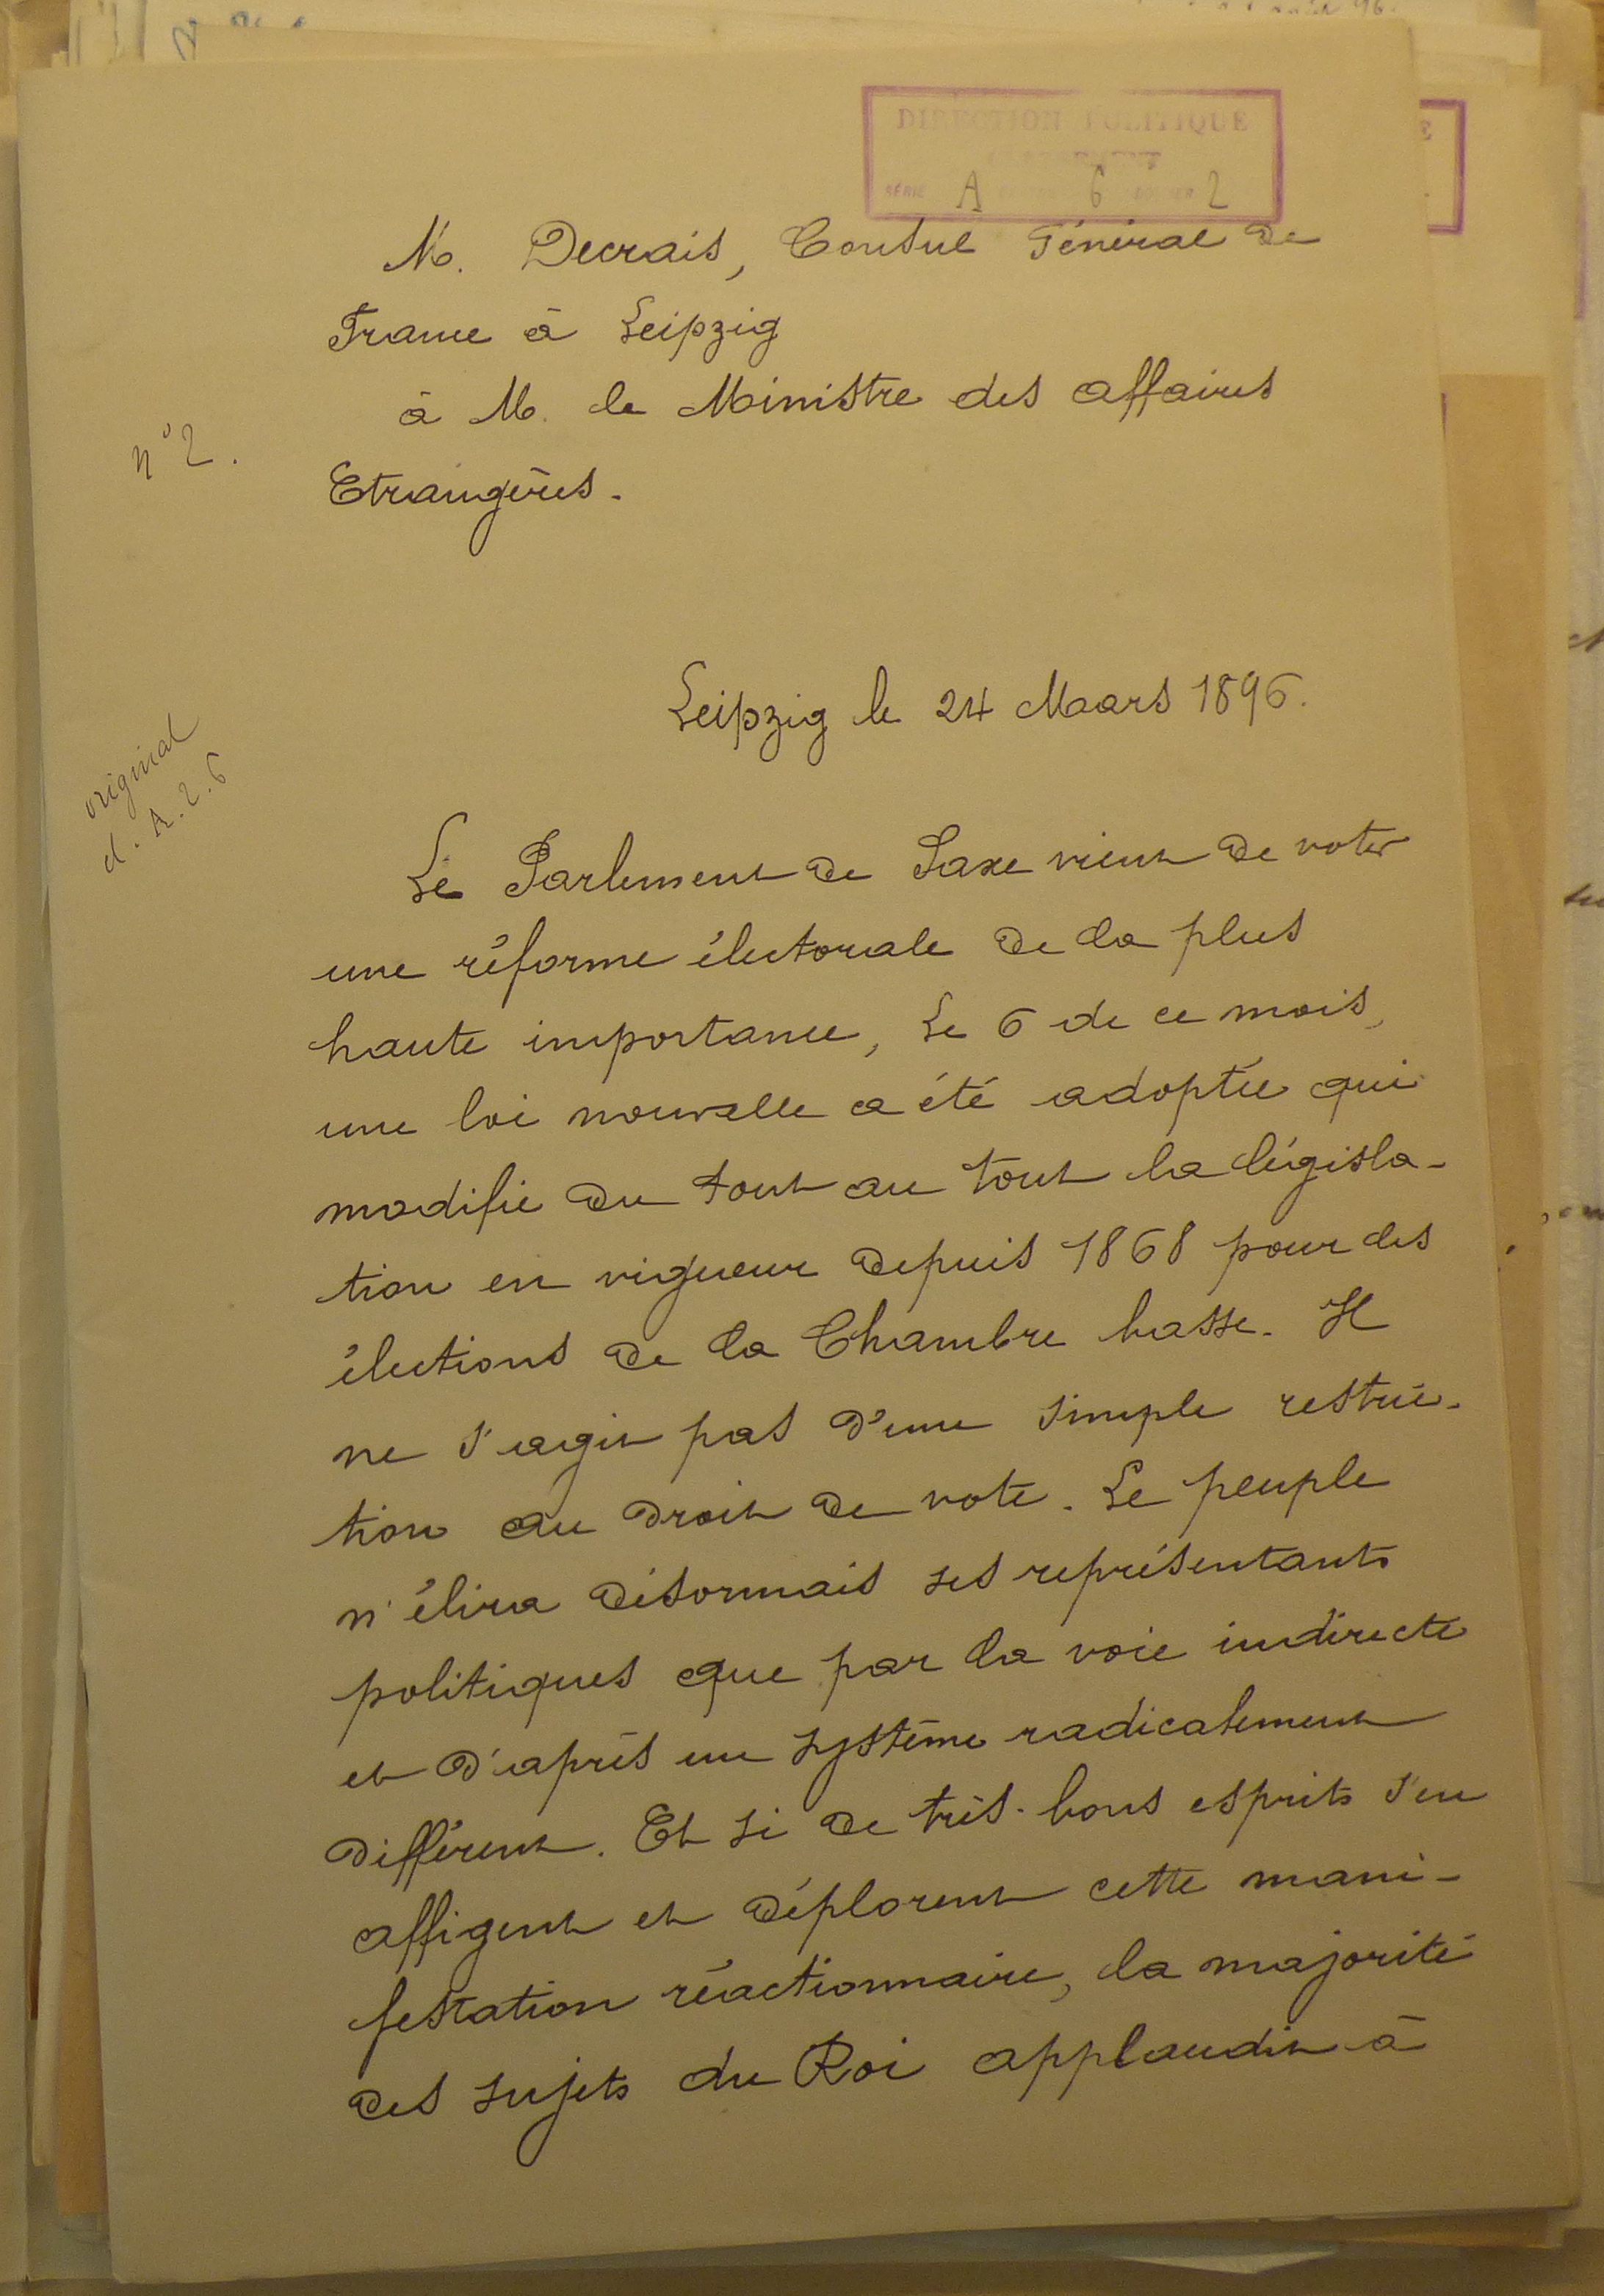 DIRECTION POLITIQUE
SÉRIE A 6 2
M. Decrais, Consul Général de
France à Leipzig
à M. le Ministre des affaires
Etrangères.
n° 2.
Leipzig le 24 Mars 1896.
original
d. A. 2. 6
Le Parlement de Saxe vient de voter
une réforme électorale de la plus
haute importance, Le 6 de ce mois,
une loi nouvelle a été adoptée qui
modifie du tout au tout la législa-
tion en vigueur depuis 1868 pour les
élections de la Chambre basse. Il
ne s'agit pas d'une simple restric-
tion au droit de vote. Le peuple
n'élira désormais ses représentants
politiques que par la voie indirecte
et d'après un système radicalement
différent. Et si de très-bons esprits s'en
affigent et déplorent cette mani-
festation réactionnaire, la majorité
des sujets du Roi applaudit à